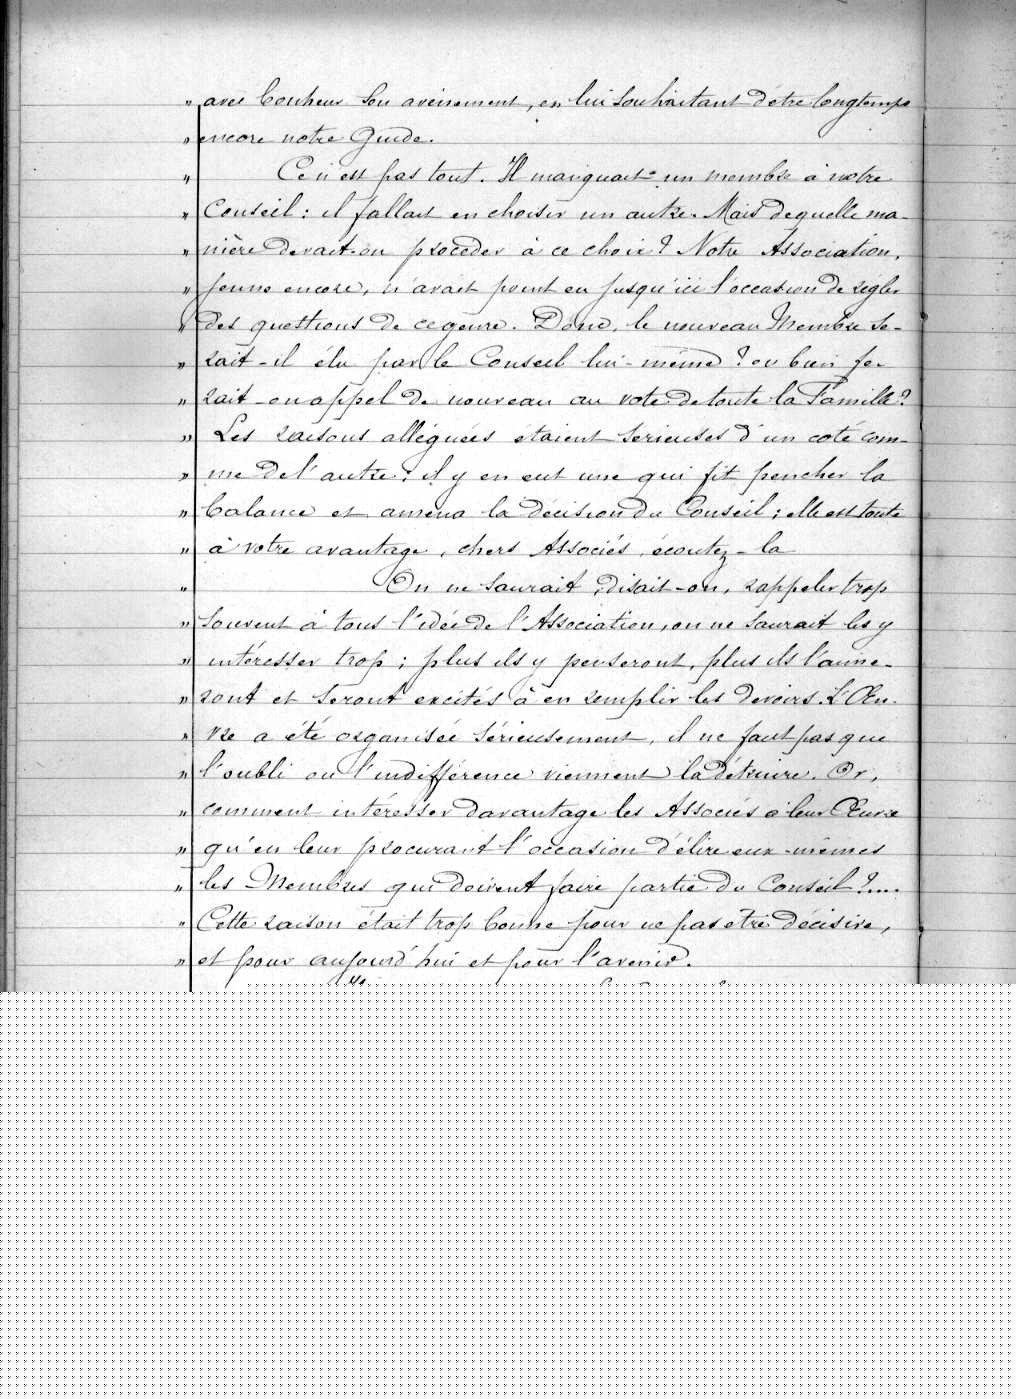 " avec bonheur son avènement, en lui souhaitant d'être longtemps
" encore notre Guide.
" Ce n'est pas tout. Il manquait un membre à notre
" Conseil : il fallait en choisir un autre. Mais de quelle ma-
" nière devait-on procéder à ce choix ? Notre Association,
" jeune encore, n'avait point eu jusqu'ici l'occasion de régler
" des questions de ce genre. Donc, le nouveau Membre se-
" rait-il élu par le Conseil lui-même ? ou bien fe-
" rait-on appel de nouveau au vote de toute la Famille ?
" Les raisons alléguées étaient sérieuses d'un coté com-
" me de l'autre : il y en eut une qui fit pencher la
" balance et amena la décision du Conseil ; elle est toute
" à votre avantage, chers Associés, écoutez-la
" On ne saurait, disait-on, rappeler trop
" souvent à tous l'idée de l'Association, on ne saurait les y
" intéresser trop ; plus ils y penseront, plus ils l'aime-
" ront et seront excités à en remplir les devoirs. L'Œu-
" vre a été organisée sérieusement, il ne faut pas que
" l'oubli ou l'indifférence viennent la détruire. Or,
" comment intéresser davantage les Associés à leur Œuvre
" qu'en leur procurant l'occasion d'élire eux-mêmes
" les Membres qui doivent faire partie du Conseil ?....
" Cette raison était trop bonne pour ne pas être décisive,
" et pour aujourd'hui et pour l'avenir.